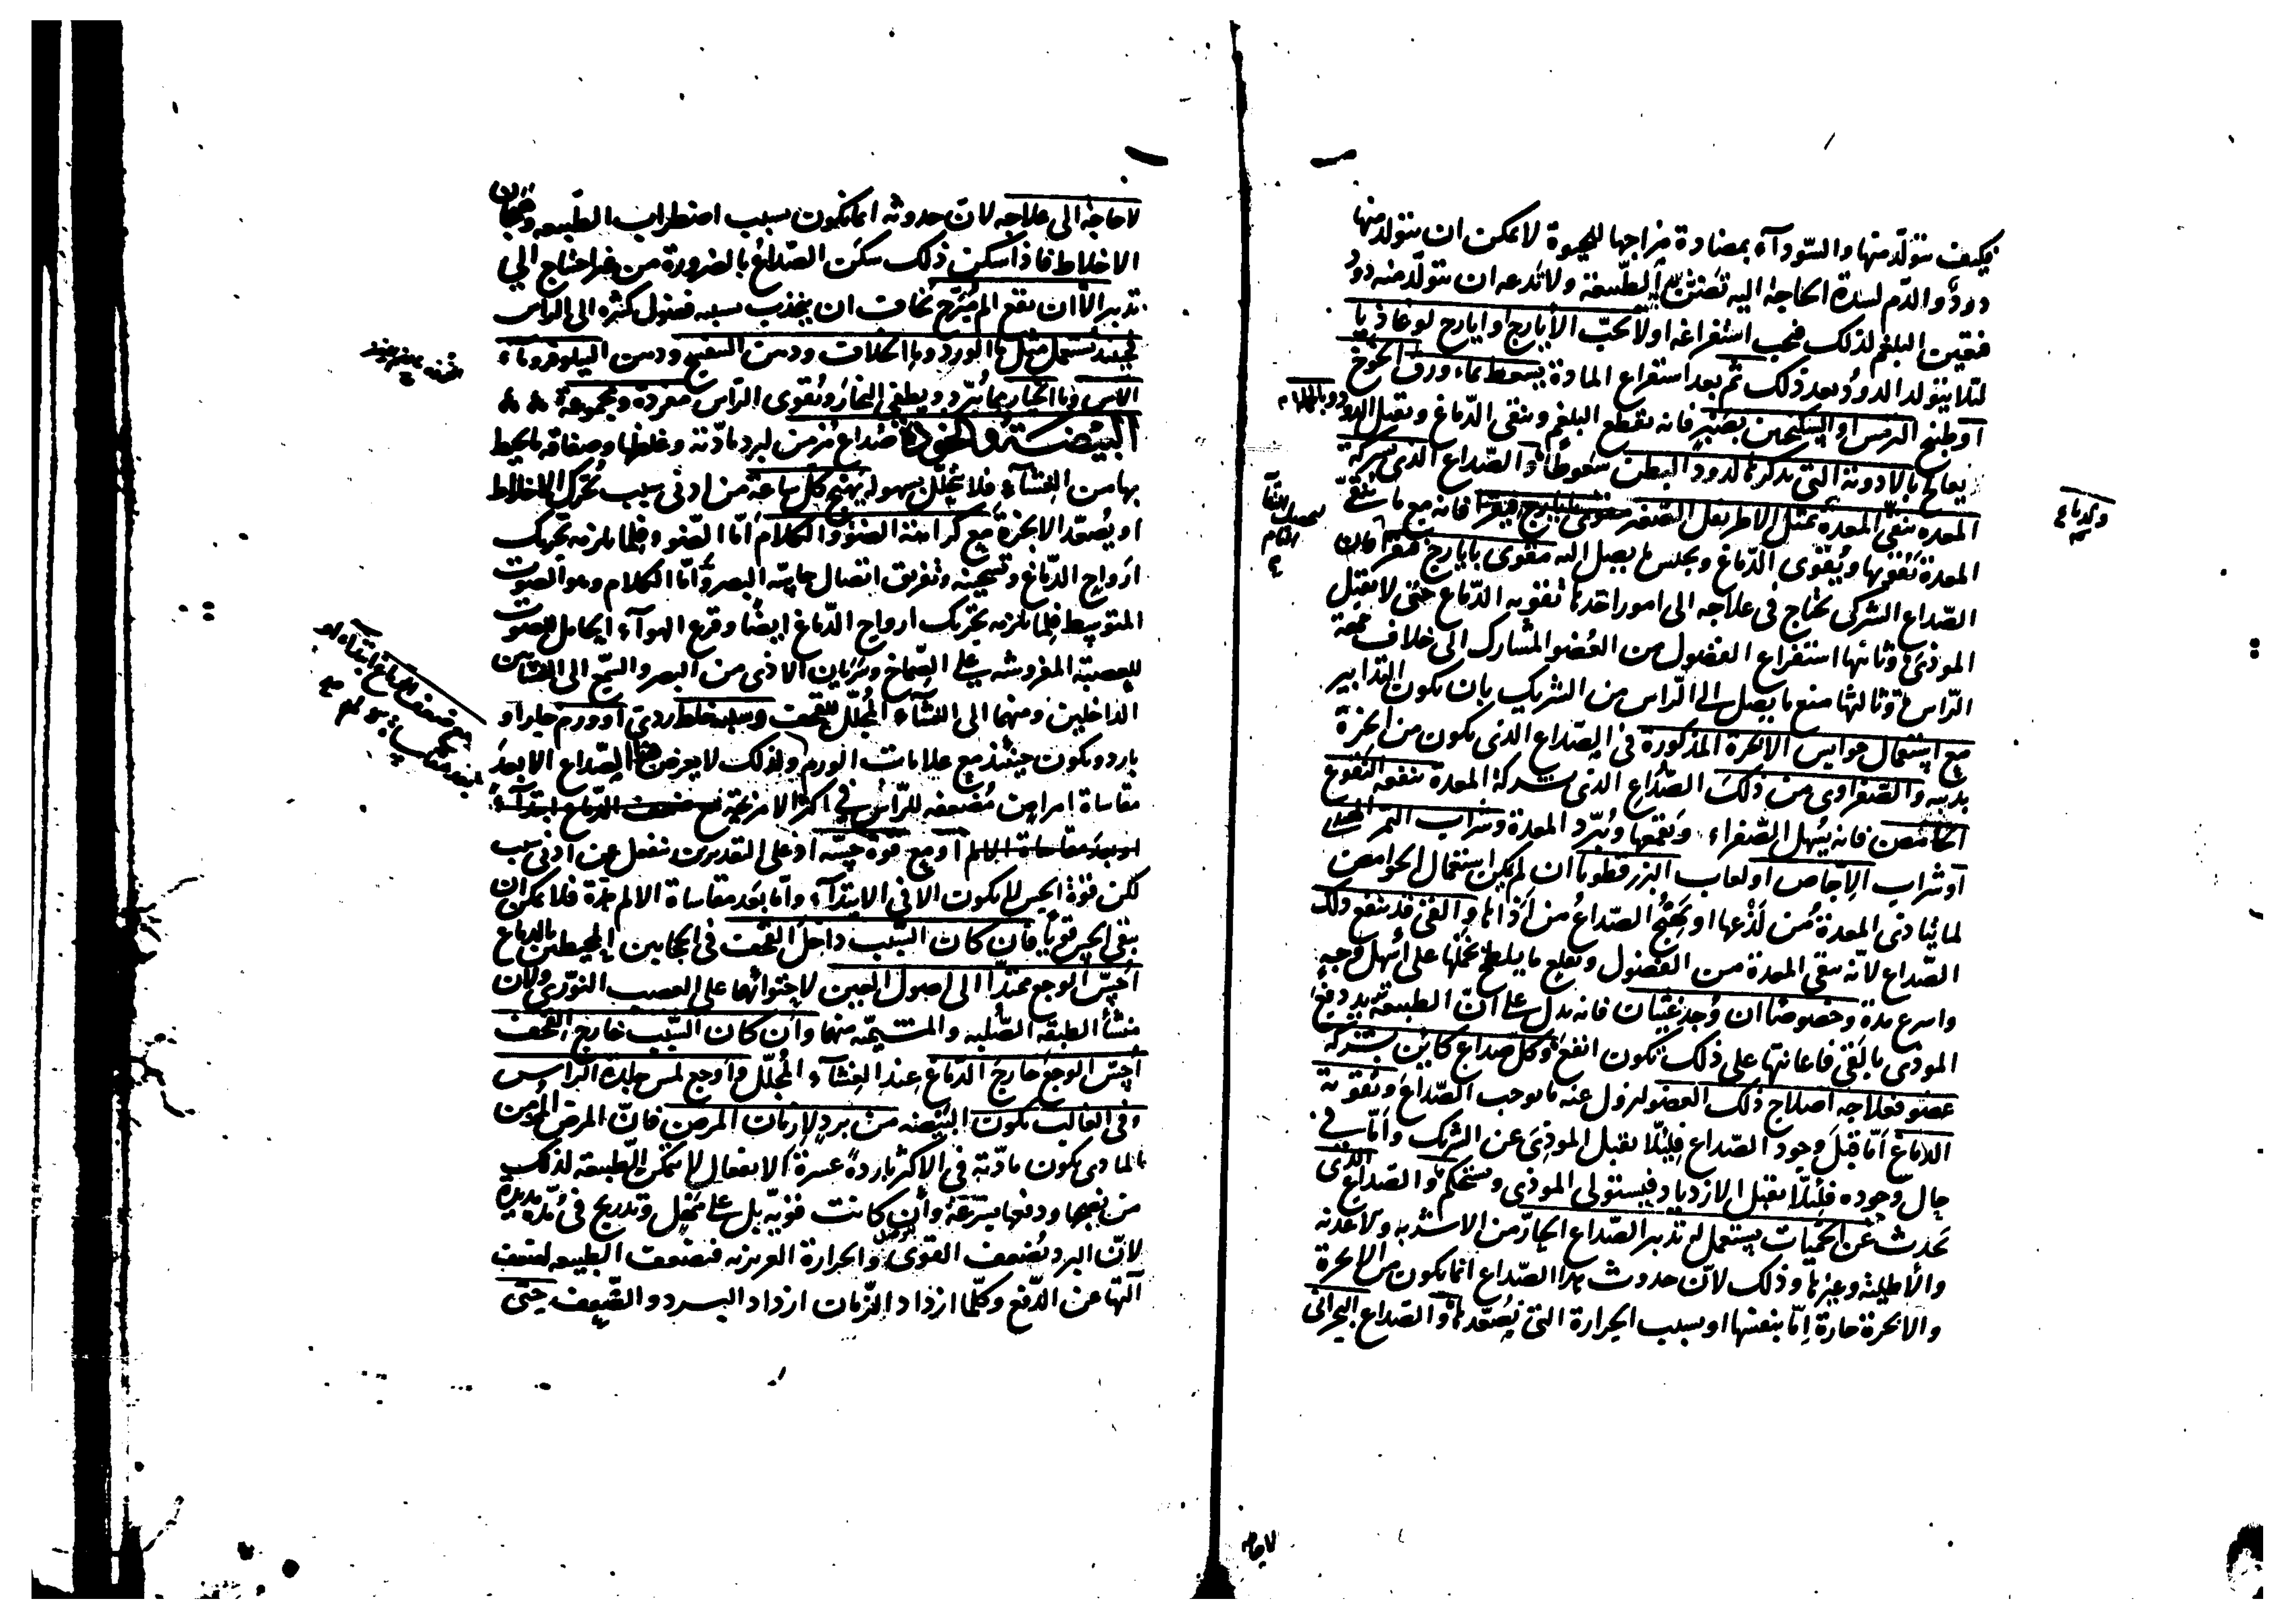 فكيف تتولد منها والسودآء بمضادة مزاجها للحيوة لا يمكن ان يتولد منها
دود والدم لشدة الحاجة اليه تضن به الطبيعة ولا تدعه ان يتولد منه دود
فتعين البلغم لذلك فيجب استفراغه اولا بحب الايارج او ايارج لوغاذيا
لئلا يتولد الدود بعد ذلك ثم بعد استفراغ المادة يسعط بماء ورق الخوخ
او طبيخ الترمس او السكنجبين بصبر فانه يقطع البلغم وينقى الدماغ ويقتل الدود
يعالج بالادوية التى نذكرها لدود البطن سعوطا والصداع الذى بشركة
المعدة ينقى المعدة بمثل الاطريفل الصغير مقوى بايارج فيقرا فانه مع ما ينقى
المعدة يقويها ويقوى الدماغ ويحبس ما يصل اليه مقوى بايارج فيقرا فان
الصداع الشركى يحتاج فى علاجه الى امور احدها تقوية الدماغ حتى لا يقبل
الموذى وثانيها استفراغ الفضول من العضو المشارك الى خلاف جهة
الراس وثالثها منع ما يصل الى الراس من الشريك بان يكون التدابير
مع استعمال حوابس الابخرة المذكورة فى الصداع الذى يكون من ابخرة
بدنية والصفراوى من ذلك الصداع الذى بشركة المعدة ينفعه النقوع
الحامض فانه يسهل الصفراء ويقمعها ويبرد المعدة وشراب التمر الهندى
او شراب الاجاص او لعاب البزرقطونا ان لم يمكن استعمال الحوامض
لما يتاذى المعدة من لذعها او يهيج الصداع من اذاها والقئ قد ينفع ذلك
الصداع لانه ينقى المعدة من الفضول ويقلع ما يلطخ بخملها على اسهل وجه
واسرع مدة وخصوصا ان وجد غثيان فانه يدل على ان الطبيعة تريد دفع
الموذى بالقئ فاعانتها على ذلك يكون انفع وكل صداع كاين بشركة
عضو فعلاجه اصلاح ذلك العضو ليزول عنه ما يوجب الصداع وتقوية
الدماغ اما قبل وجود الصداع فلئلا يقبل الموذى عن الشريك واما فى
حال وجوده فلئلا يقبل الازدياد فيستولى الموذى ويستحكم والصداع الذى
يحدث عن الحميات يستعمل له تدبير الصداع الحار من الاشربة والاغذية
والاطلية وغيرها وذلك لان حدوث هذا الصداع انما يكون من الابخرة
والابخرة حارة اما بنفسها او بسبب الحرارة التى تصعدها والصداع البحرانى
لا حاجة الى علاجه لان حدوثه انما يكون بسبب اضطراب الطبيعة وهيجان
الاخلاط فاذا سكن ذلك سكن الصداع بالضرورة من غير احتياج الى
تدبير الا ان يقع الم مبرح يخاف ان ينجذب بسببه فضول كثيرة الى الراس
فحينئذ يستعمل مثل ماء الورد وماء الخلاف ودهن البنفسج ودهن النيلوفر وماء
الاس وماء الخيار مما يبرد ويطفى البخار ويقوى الراس مفردة ومجموعة
البيضة والخوذة صداع مزمن لبرد مادته وغلظها وصفاقة ما يحيط
بها من الغشاء فلا يتحلل بسهولة يهيج كل ساعة من ادنى سبب يحرك الاخلاط
او يصعد الابخرة مع كراهة الضوء والكلام اما الضوء فلما يلزمه تحريك
ارواح الدماغ وتسخينه وتفريق اتصال حاسة البصر واما الكلام وهو الصوت
المتوسط فلما يلزمه تحريك ارواح الدماغ ايضا وقرع الهوآء الحامل للصوت
للعصبة المفروشة على الصماخ وسريان الاذى من البصر والسمع الى الغشائين
الداخلين ومنهما الى الغشاء المجلل للقحف وسببه خلط ردئ او ورم حار او
بارد ويكون حينئذ مع علامات الورم ولذلك لا يعرض هذا الصداع الا بعد
مقاساة امراض مضعفة للراس فى اكثر الامزجة مع ضعف الدماغ ابتدآء
او بعد مقاساة الالم او مع قوة حسه اذ على التقديرين ينفعل عن ادنى سبب
لكن قوة الحس لا يكون الا فى الابتدآء واما بعد مقاساة الالم مدة فلا يمكن ان
يبقى الحس قويا فان كان السبب داخل القحف فى الحجابين المحيطين بالدماغ
احس الوجع ممتدا الى اصول العين لاحتوائها على العصب النورى ولان
منشأ الطبقة الصلبه والمشيميه منهما وان كان السبب خارج القحف
احس الوجع خارج الدماغ عند الغشآء المجلل واوجع لمس جلدة الراس
وفى الغالب يكون البيضة من برد لازمان المرض فان المرض المزمن
المادى يكون مادته فى الاكثر باردة عسرة الانفعال لا يمكن الطبيعة لذلك
من نضجها ودفعها بسرعة وان كانت قوية بل على مهل وتدريج فى مدة مديدة
لان البرد يضعف القوى والحرارة الغريزية فيضعف الطبيعة لضعف
آلتها عن الدفع وكلما ازداد الزمان ازداد البرد والضعف حتى